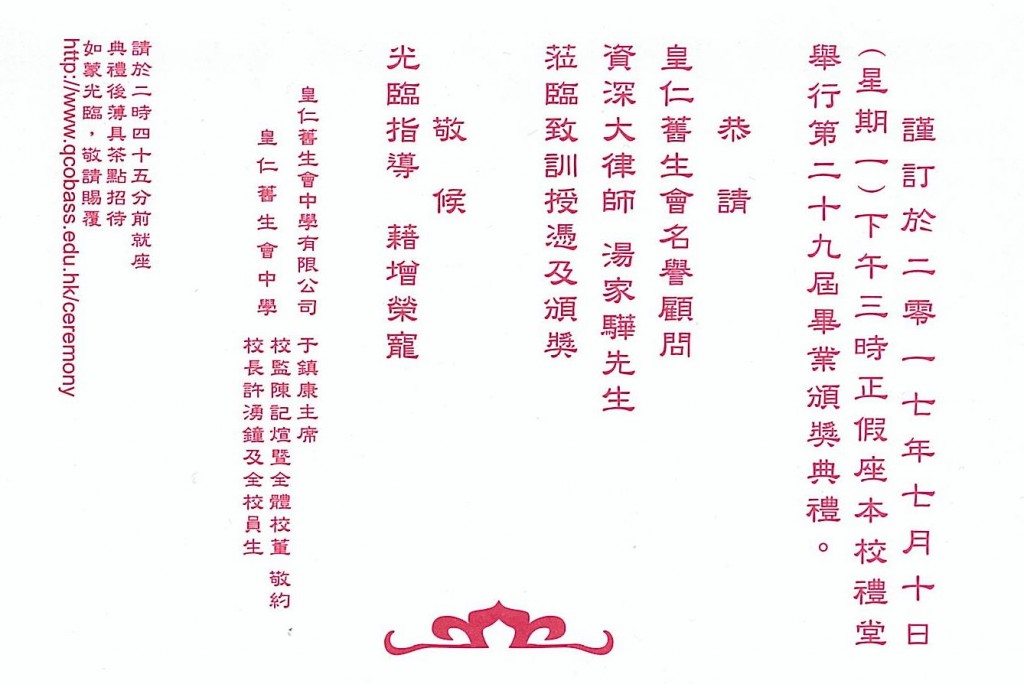 謹訂於二零一七年七月十日
（星期一）下午三時正假座本校禮堂
舉行第二十九屆畢業頒獎典禮。
恭請
皇仁舊生會名譽顧問
資深大律師 湯家驊先生
蒞臨致訓授憑及頒獎
敬候
光臨指導 藉增榮寵
皇仁舊生會中學有限公司 于鎮康主席
校監陳記煊暨全體校董 敬約
皇仁舊生會中學 校長許湧鐘及全校員生
請於二時四十五分前就座
典禮後薄具茶點招待
如蒙光臨，敬請賜覆
http://www.qcobass.edu.hk/ceremony